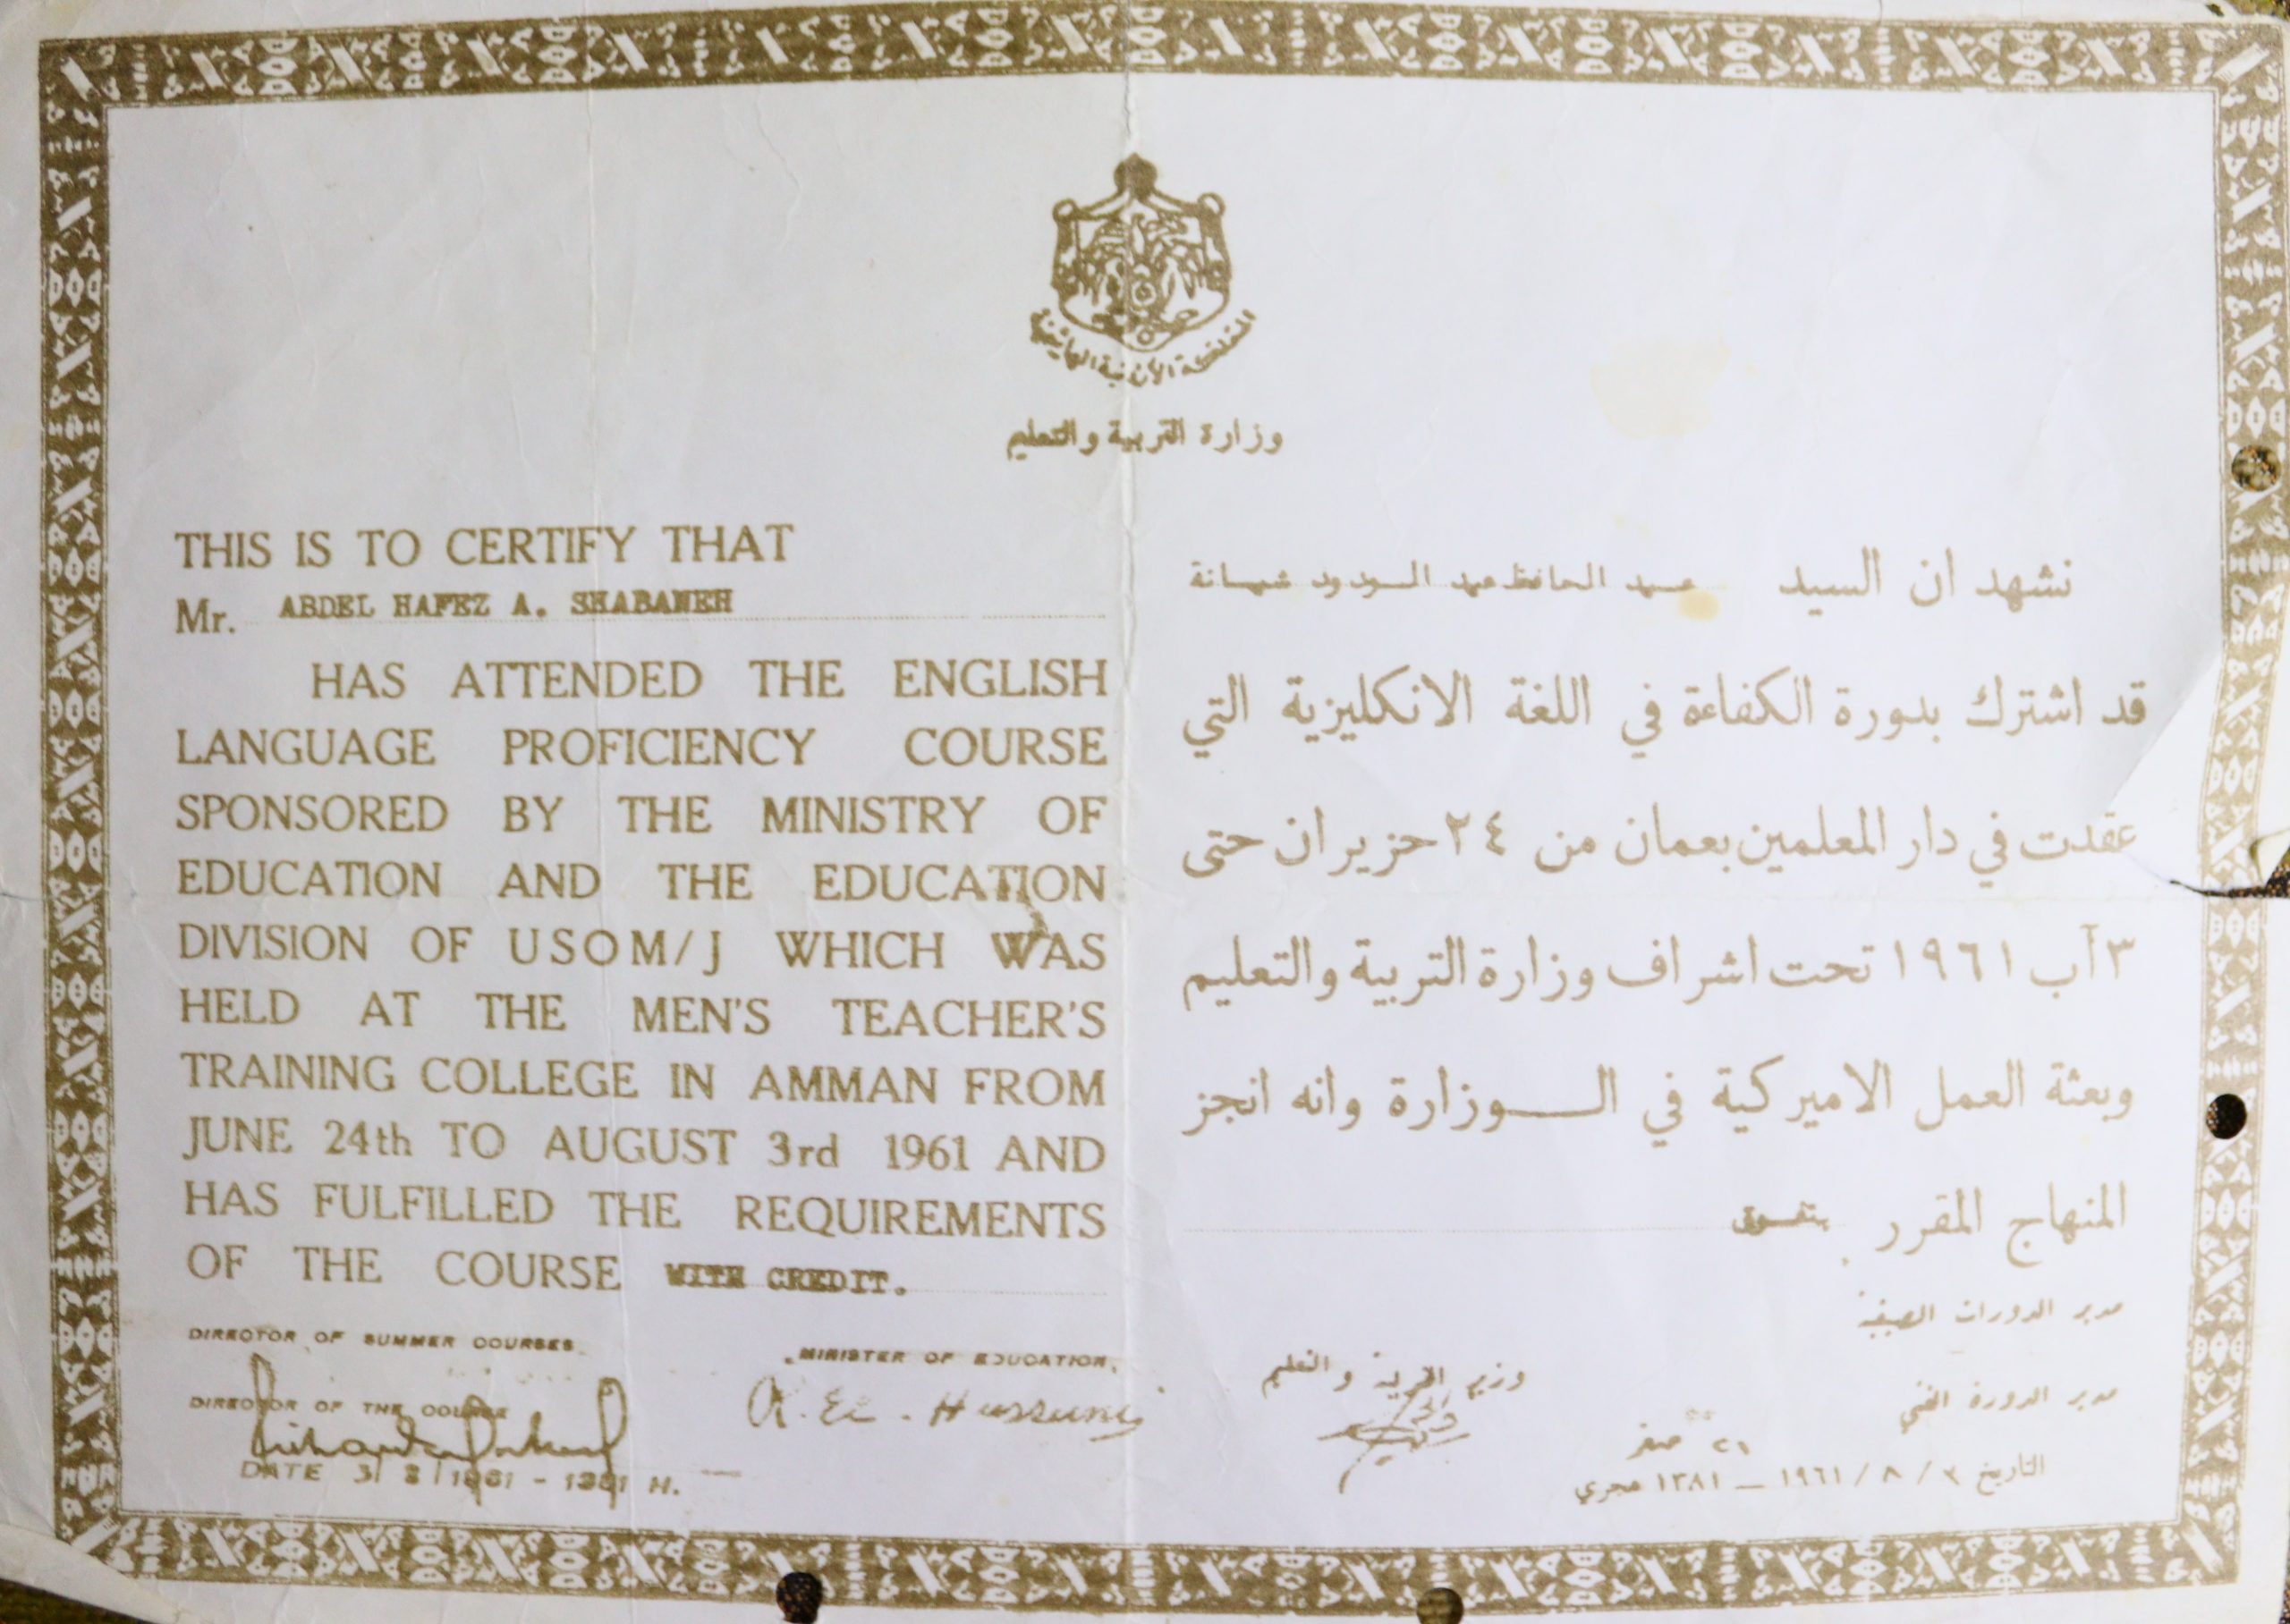 المملكة الأردنية الهاشمية
وزارة التربية والتعليم
THIS IS TO CERTIFY THAT
Mr. ABDEL HAFEZ A. SHABANEH
HAS ATTENDED THE ENGLISH
LANGUAGE PROFICIENCY COURSE
SPONSORED BY THE MINISTRY OF
EDUCATION AND THE EDUCATION
DIVISION OF USOM/J WHICH WAS
HELD AT THE MEN'S TEACHER'S
TRAINING COLLEGE IN AMMAN FROM
JUNE 24th TO AUGUST 3rd 1961 AND
HAS FULFILLED THE REQUIREMENTS
OF THE COURSE WITH CREDIT.
DIRECTOR OF SUMMER COURSES
MINISTER OF EDUCATION.
DIRECTOR OF THE COURSE
DATE 3/8/1961 - 1381 H.
نشهد ان السيد عبد الحافظ عبد الودود شبانة
قد اشترك بدورة الكفاءة في اللغة الانكليزية التي
عقدت في دار المعلمين بعمان من ٢٤ حزيران حتى
٣ آب ١٩٦١ تحت اشراف وزارة التربية والتعليم
وبعثة العمل الاميركية في الـــوزارة وانه انجز
المنهاج المقرر بتفوق
مدير الدورات الصيفية
وزير التربية والتعليم
مدير الدورة الفني
٢١ صفر
التاريخ ٣ / ٨ / ١٩٦١ — ١٣٨١ هجري